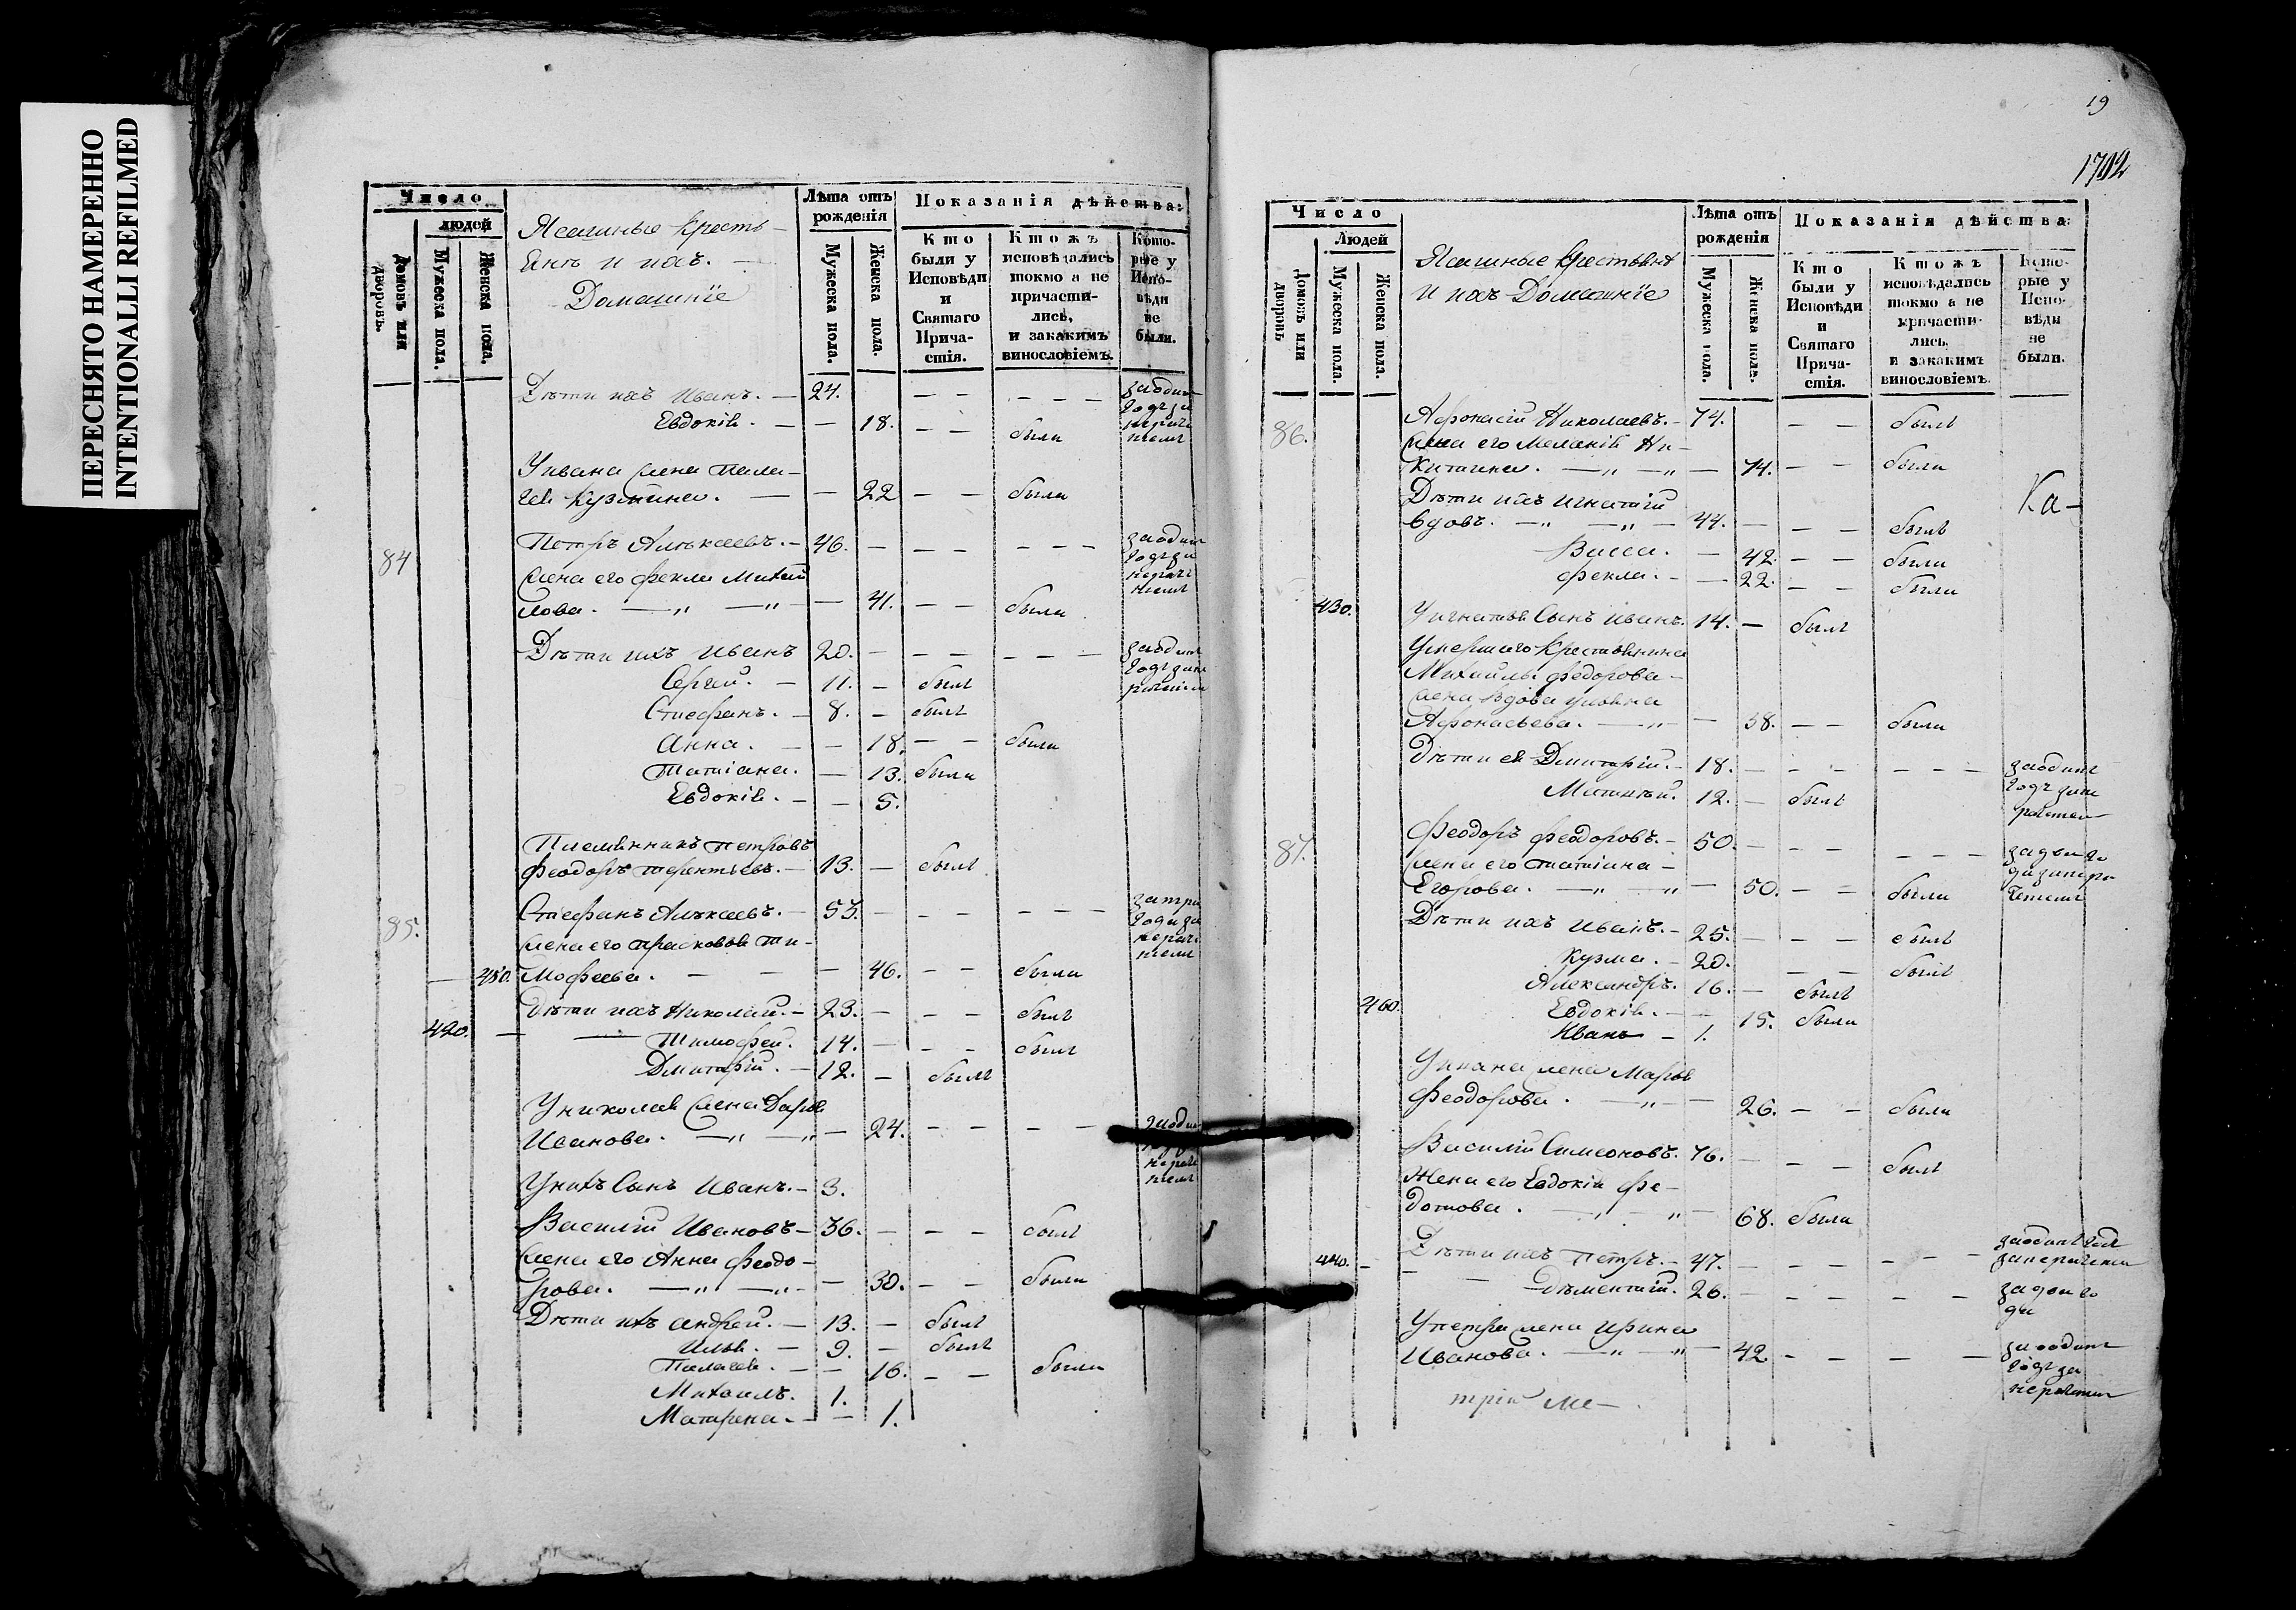 ПЕРЕСНЯТО НАМЕРЕННО
INTENTIONALLI REFILMED
Число
людей
Домовъ или дворовъ.
Мужеска пола.
Женска пола.
Ясашные кресть-
яне и ихъ
Домашніе
Лѣта отъ рожденія
Мужеска пола.
Женска пола.
Показанія дѣйства:
Кто были у Исповѣди и Святаго Прича-стія.
Ктожъ исповѣдались токмо а не причасти-лись, и закакимъ винословіемъ.
Кото-рые у Испо-вѣди не были.
Дѣти ихъ Иванъ. — 24. — — — — — заодин годъ за нераченіем
Евдокія. — — 18. — — была
Уивана жена Пела-
гея Кузмина. — — 22 — — была
84 Петръ Алексеевъ. — 46. — — — — — — заодин годъ за нерачением
Жена его Фекла Михай
лова. — „ — „ — 41. — — была
Дѣти ихъ Иванъ 20. — — — — — —
Сергей. — 11. — былъ
Стефанъ. — 8. — былъ
Анна. — — 18. — — была
Татіана. — 13. была
Евдокія. — — 5.
Племянникъ петровъ
Феодоръ терентьевъ. — 13. — былъ
85. Стефанъ Алексеевъ. — 53. — — — — — — затри года за нерачением
Жена его прасковья ти-
450. мофеева. — — — 46. — — была
Дѣти ихъ Николай. — 23. — — — былъ
420. — Тимофей. 14. — — — былъ
Дмитрій. — 12. — былъ
Униколая жена Дарья
Иванова. — „ — „ — 24. — — — —
Унихъ Сынъ Иванъ. — 3.
Василій Ивановъ — 36. — — — былъ
Жена его Анна Феодо-
рова. — „ — „ — 30. — — была
Дѣти ихъ андрей. — 13. — былъ
Илья. — 9. — былъ
Пелагея. — — 16. — — была
Михаилъ. 1.
Матрена. — — 1.
19
1702
Число
Людей
Домовъ или дворовъ
Мужеска пола.
Женска пола.
Ясашные крестьяне
и ихъ Домашніе
Лѣта отъ рожденія
Мужеска пола.
Женска пола.
Показанія дѣйства:
Кто были у Исповѣди и Святаго Прича-стія.
Ктожъ исповѣдались токмо а не причасти-лись, и закакимъ винословіемъ.
Кото-рые у Испо-вѣди не были.
86. Афонасій Николаевъ. — 74. — — былъ
Жена его Меланія Ни-
китина. — „ — „ — 74. — — была
Ка-
Дѣти ихъ игнатій
вдовъ. — „ — „ — 44. — — — былъ
Васса. — 42. — — была
Фекла. — — 22. — — была
430. Уигнатья Сынъ иванъ. 14. — былъ
Умершаго крестьянина
Михайлы федорова —
жена вдова ульяна
Афонасьева. — „ — 58. — — была
Дѣти ея Дмитрій. — 18. — — — — — —
Матвей. 12. — былъ
87. Феодоръ феодоровъ. — 50. — — — — — —
Жена его татіана —
Егорова. — „ — „ — 50. — — была
Дѣти ихъ Иванъ. — 25. — — — былъ
Кузма. — 20. — — былъ
Александръ. 16. — былъ
460. Евдокія. — — 15. была
Иванъ — 1.
Уивана жена Марья
Феодорова. — „ — 26. — — была
Василій Симеоновъ. 76. — — — былъ
Жена его Евдокія Фе-
дотова. — „ — „ — 68. была
440. — Дѣти ихъ петръ. — 47. — — — — —
Дементій. 26. — — — — — задви года
Упетра жена Ирина
Иванова. — „ — „ — 42 — — — —
трій Ме-